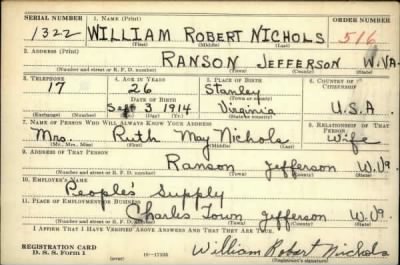 SERIAL NUMBER 1. NAME (Print) ORDER NUMBER
1322 WILLIAM ROBERT NICHOLS 516
(First) (Middle) (Last)
2. ADDRESS (Print)
RANSON JEFFERSON W.VA.
(Number and street or R. F. D. number) (Town) (County) (State)
3. TELEPHONE 4. AGE IN YEARS 5. PLACE OF BIRTH 6. COUNTRY OF CITIZENSHIP
17 26 Stanley
DATE OF BIRTH (Town or county)
Sept 3 1914 Virginia U.S.A.
(Mo.) (Day) (Yr.) (State or country)
7. NAME OF PERSON WHO WILL ALWAYS KNOW YOUR ADDRESS 8. RELATIONSHIP OF THAT PERSON
Mrs. Ruth May Nichols Wife
(Mr., Mrs., Miss) (First) (Middle) (Last)
9. ADDRESS OF THAT PERSON
Ranson Jefferson W.Va.
(Number and street or R. F. D. number) (Town) (County) (State)
10. EMPLOYER'S NAME
People's Supply
11. PLACE OF EMPLOYMENT OR BUSINESS
Charles Town Jefferson W.Va.
(Number and street or R. F. D. number) (Town) (County) (State)
I AFFIRM THAT I HAVE VERIFIED ABOVE ANSWERS AND THAT THEY ARE TRUE.
REGISTRATION CARD
D. S. S. Form 1 William Robert Nichols